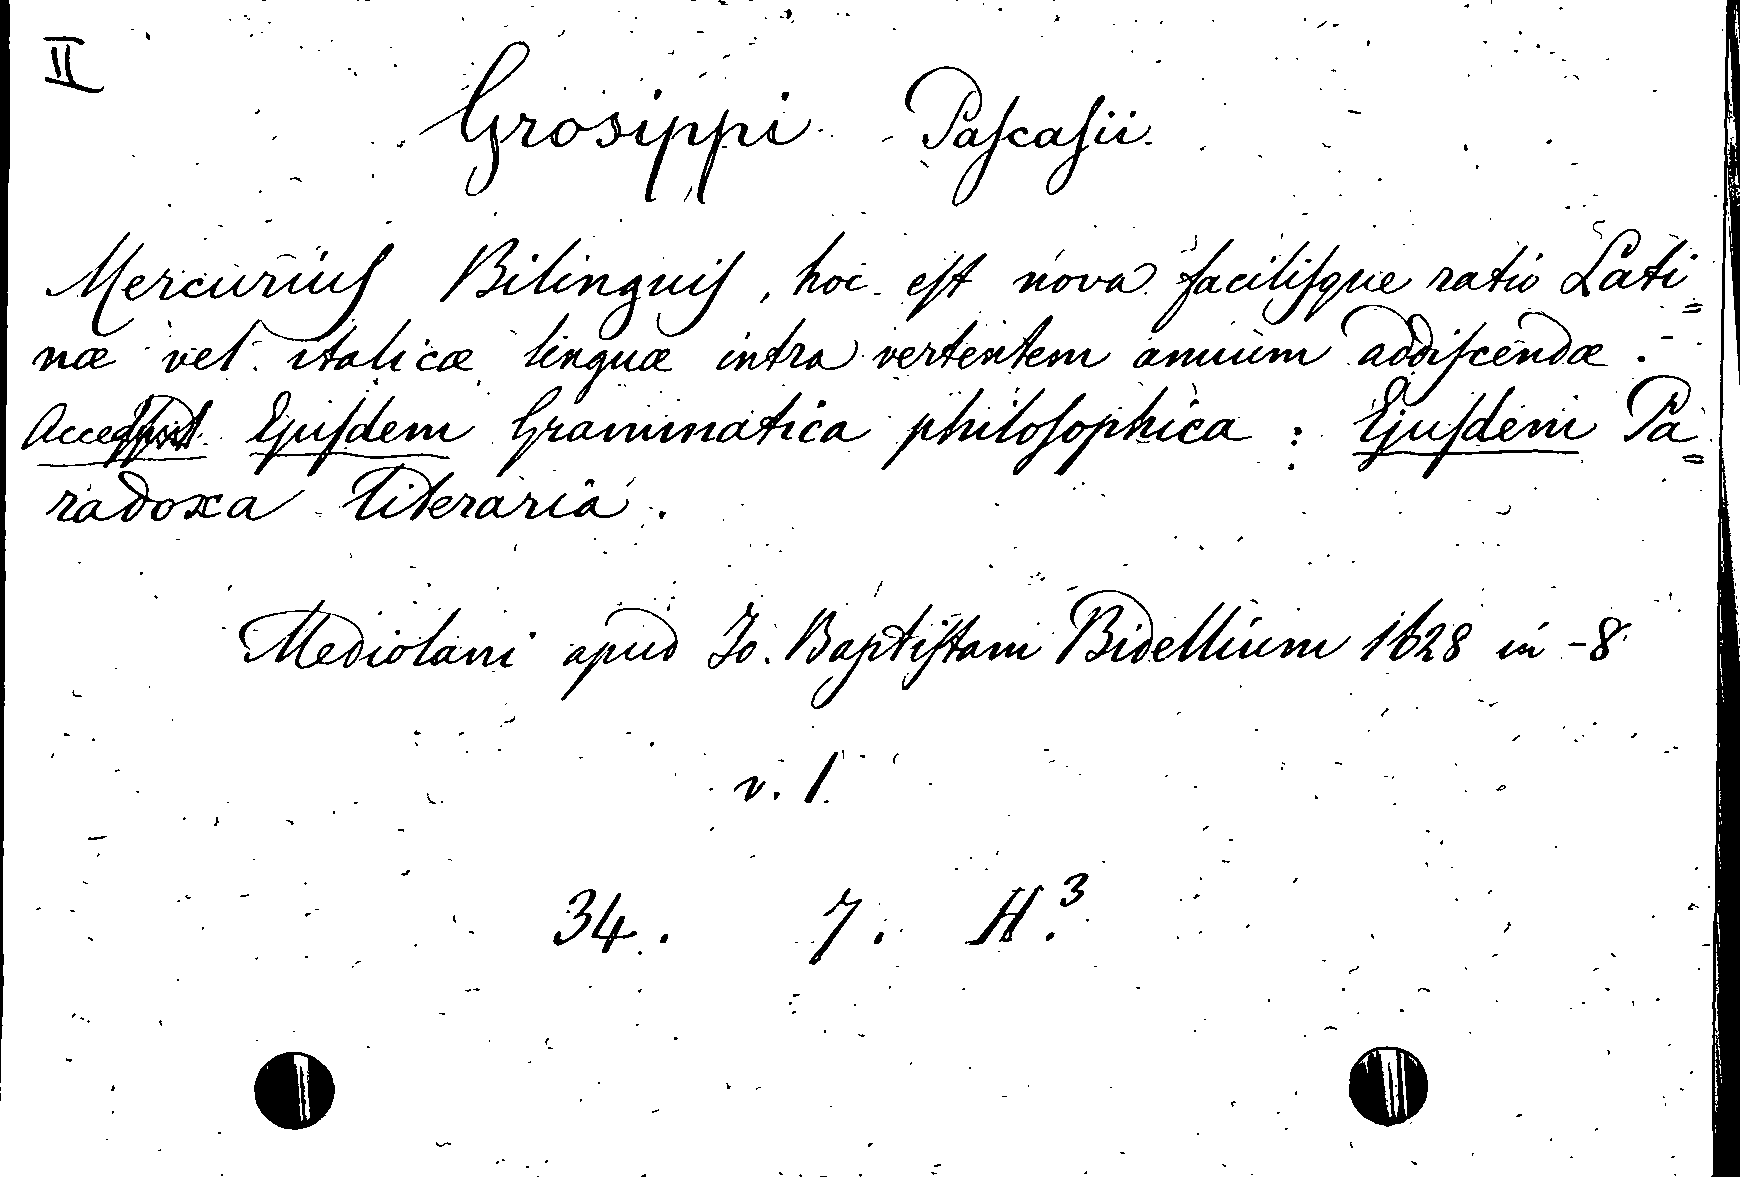 II
Grosippi Paſcaſii.
Mercuriuſ Bilinguiſ, hoc eſt nova faciliſque ratio Lati=
næ vel italicæ linguæ intra vertentem annum addiſcendæ.
Ejuſdem Grammatica philoſophica : Ejuſdem Pa=
radoxa literaria.
Mediolani apud Jo. Baptiſtam Bidellium 1628 in -8
v. 1.
34. 7. H.³